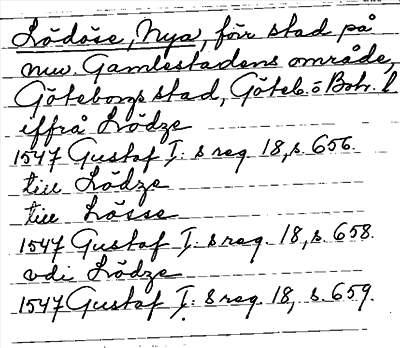 Lödöse, Nya, förr stad på
nuv. Gamlestadens område,
Göteborgs stad, Göteb. o Boh. l
iffrå Lödze
1547 Gustaf I: s reg. 18, s. 656.
till Lödze
till Lösse
1547 Gustaf I: s reg. 18, s. 658.
vdi Lödze
1547 Gustaf I: s reg. 18, s. 659.